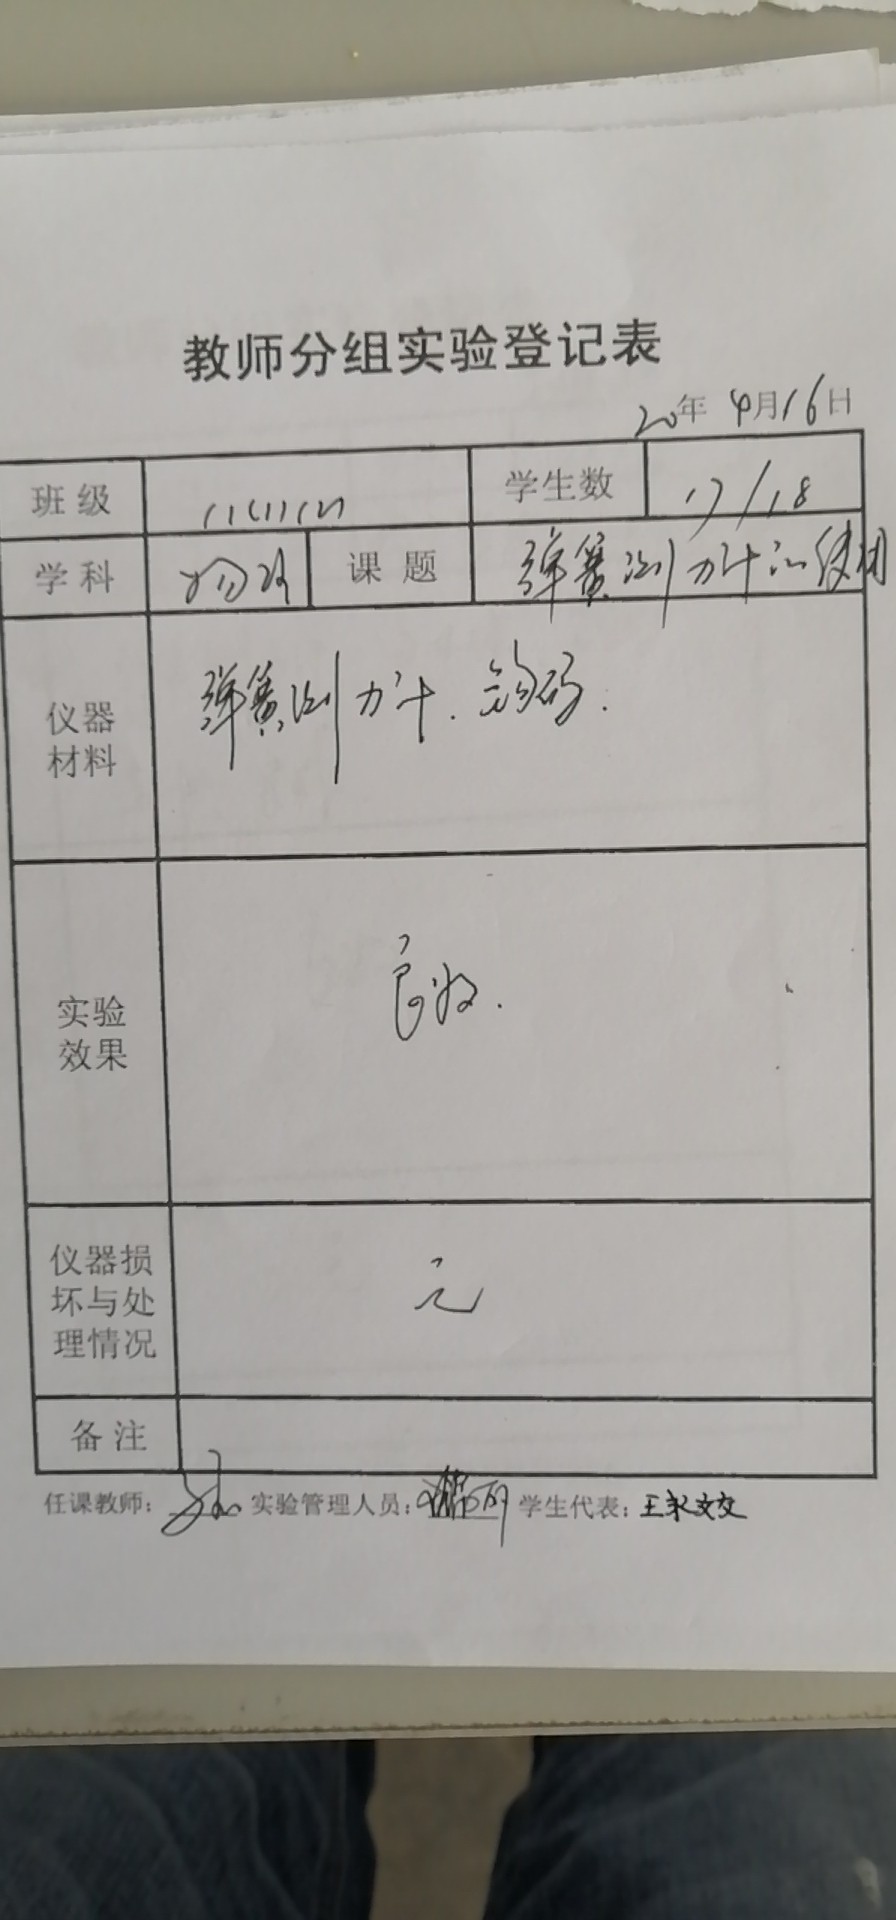 教师分组实验登记表
20年 4月16日
班级 学生数 17/18
学科 物理 课题 弹簧测力计的使用
仪器材料 弹簧测力计.钩码.
实验效果 良好.
仪器损坏与处理情况 无
备注
任课教师: 实验管理人员: 学生代表: